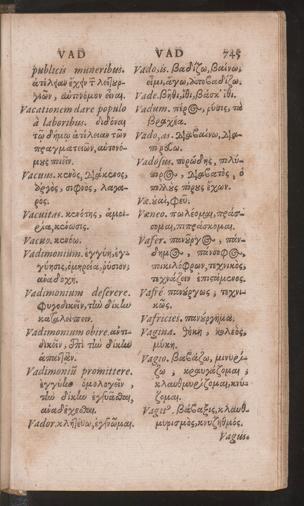 VAD
VAD 745
publicis muneribus.
ἀτέλειαν ἔχην τ λειτουργιῶν,
Vacationem dare populo
à laboribus. διδόναι
τῷ δήμῳ ἀτέλειαν τῶν
πραγματειῶν,
Vacuus. κενὸς, διάκενος,
ἀργὸς, σιφνὸς, λαγαρος.
Vacuitas. κενότης, ἀμοιρία,
κένωσις.
Vacuo. κενόω.
Vadimonium. ἐγγύη, ἐγγύησις,
ὁμηρεία, ῥύσιον,
ἀναδοχή.
Vadimonium deserere.
φυγοδικεῖν, τὴν δίκην
καταλείπειν.
Vadimonium obire. ἀντιδικεῖν,
ἐπὶ τὴν δίκην
ἀπαντᾶν.
Vadimoniũ promittere.
ἐγγύην ὁμολογεῖν,
τὴν δίκην ἐγγυᾶσθαι,
ἀναδέχεσθαι.
Vador. κλητεύω, ἐγγυῶμαι.
Vado, is. βαδίζω, βαίνω,
εἶμι, ἄγω, ἀποβαδίζω.
Vade. βῆθι, ἴθι, βάσκ' ἴθι.
Vadum. πόρος, ῥύσις, τὰ
βραχέα.
Vado, as. διαβαίνω, διαπορεύω.
Vadosus. πορώδης, πολύπορος,
διαβατὸς, ὁ
πολλοὺς πόρους ἔχων.
Væ. οὐαὶ, φεῦ.
Væneo. πωλέομαι, πράσσομαι,
πιπράσκομαι.
Vafer. πανοῦργος, πάνδημος,
πάνσοφος,
ποικιλόφρων, τεχνικὸς,
τεχνάζειν ἐπιστάμενος.
Vafrè. πανούργως, τεχνικῶς.
Vafricies. πανούργημα.
Vagina. θήκη, κολεὸς,
μύκη.
Vagio. βαβάζω, μινυρίζω,
κραυγάζομαι,
κλαυθμυρίζομαι, κνυζομαι.
Vagitꝰ. βάβαξις, κλαυθμυρισμὸς,
κνυζηθμός.
Vagus.